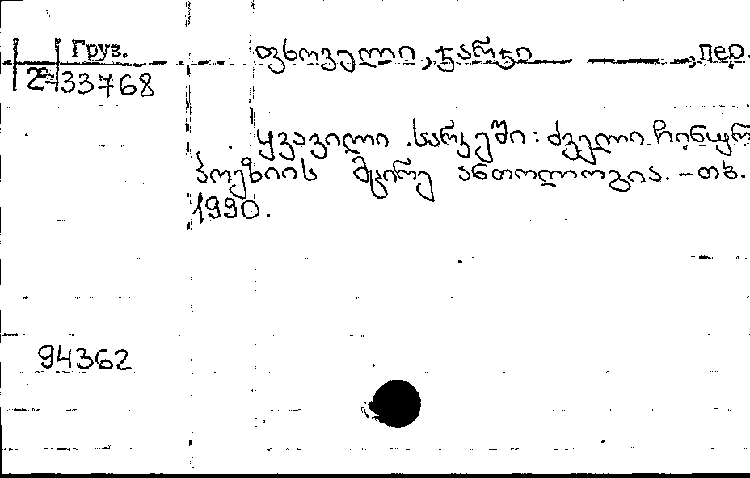 Груз.
ფხოველი, ჯარჯი , пер.
2-33768
ყვავილი სარკეში: ძველი ჩინურ
პოეზიის მცირე ანთოლოგია. - თბ.
1990.
94362